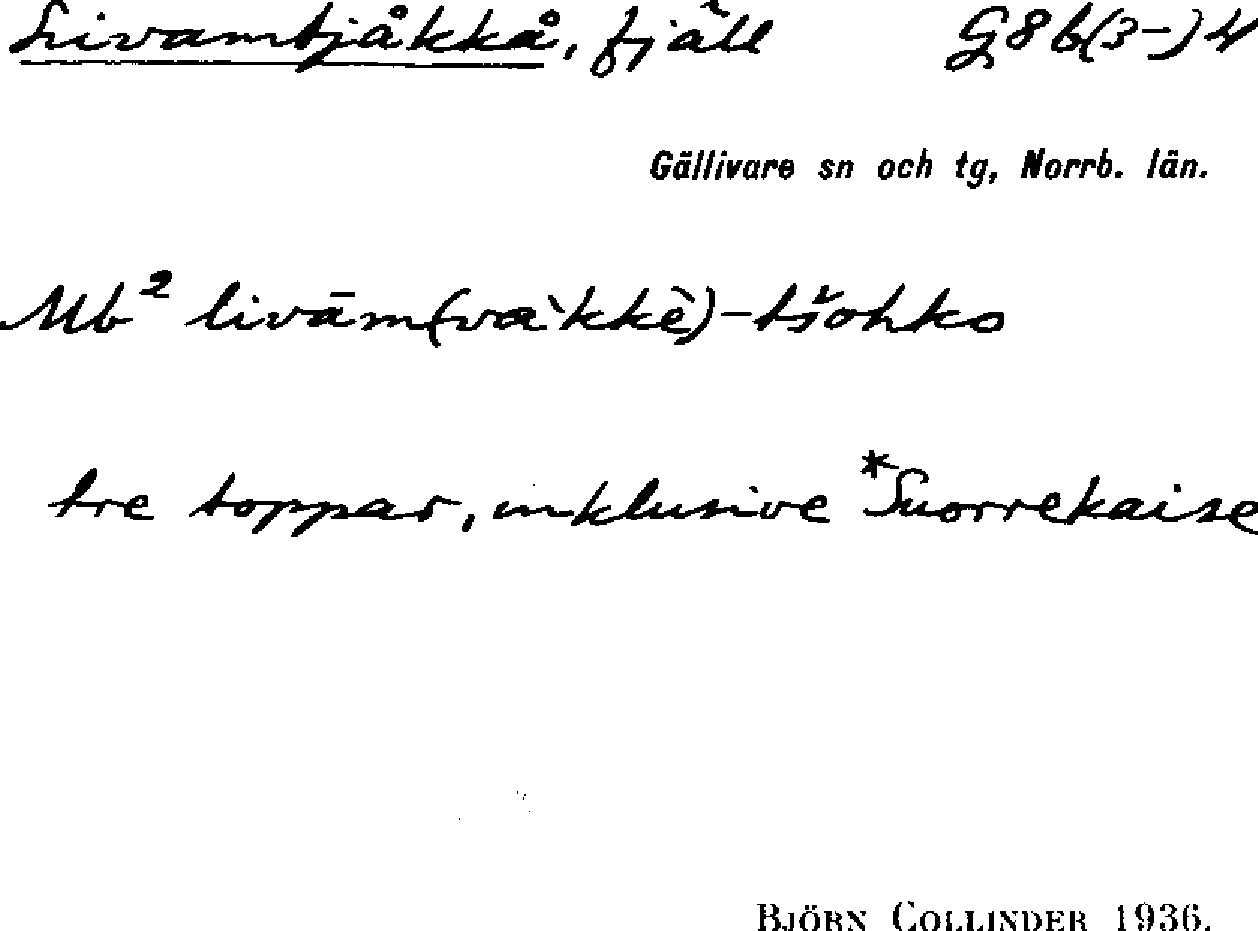 Livamtjåkkå, fjäll G8b(3-)4
Gällivare sn och tg, Norrb. län.
Mb² livām(va`kkè)-tšohko
tre toppar, inklusive *Suorrekaise
BJÖRN COLLINDER 1936.